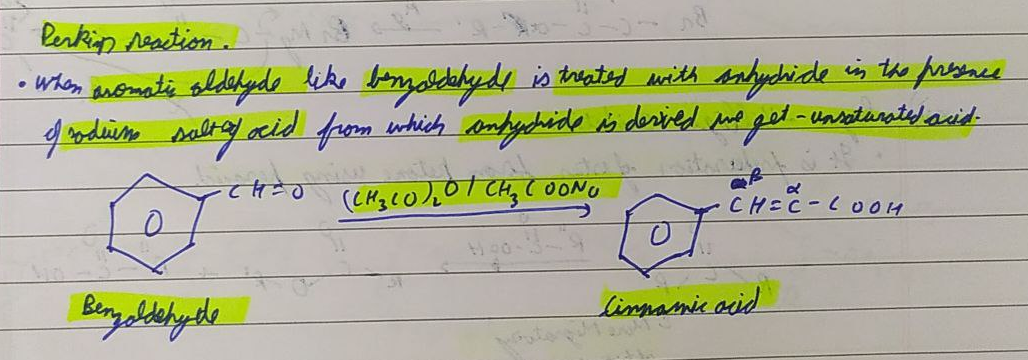 Perkin reaction.
• When aromatic aldehyde like benzaldehyde is treated with anhydride in the presence
of sodium salt of acid from which anhydride is derived we get - unsaturated acid.
β α
CH=O (CH3CO)2O / CH3COONa CH=C-COOH
Benzaldehyde Cinnamic acid